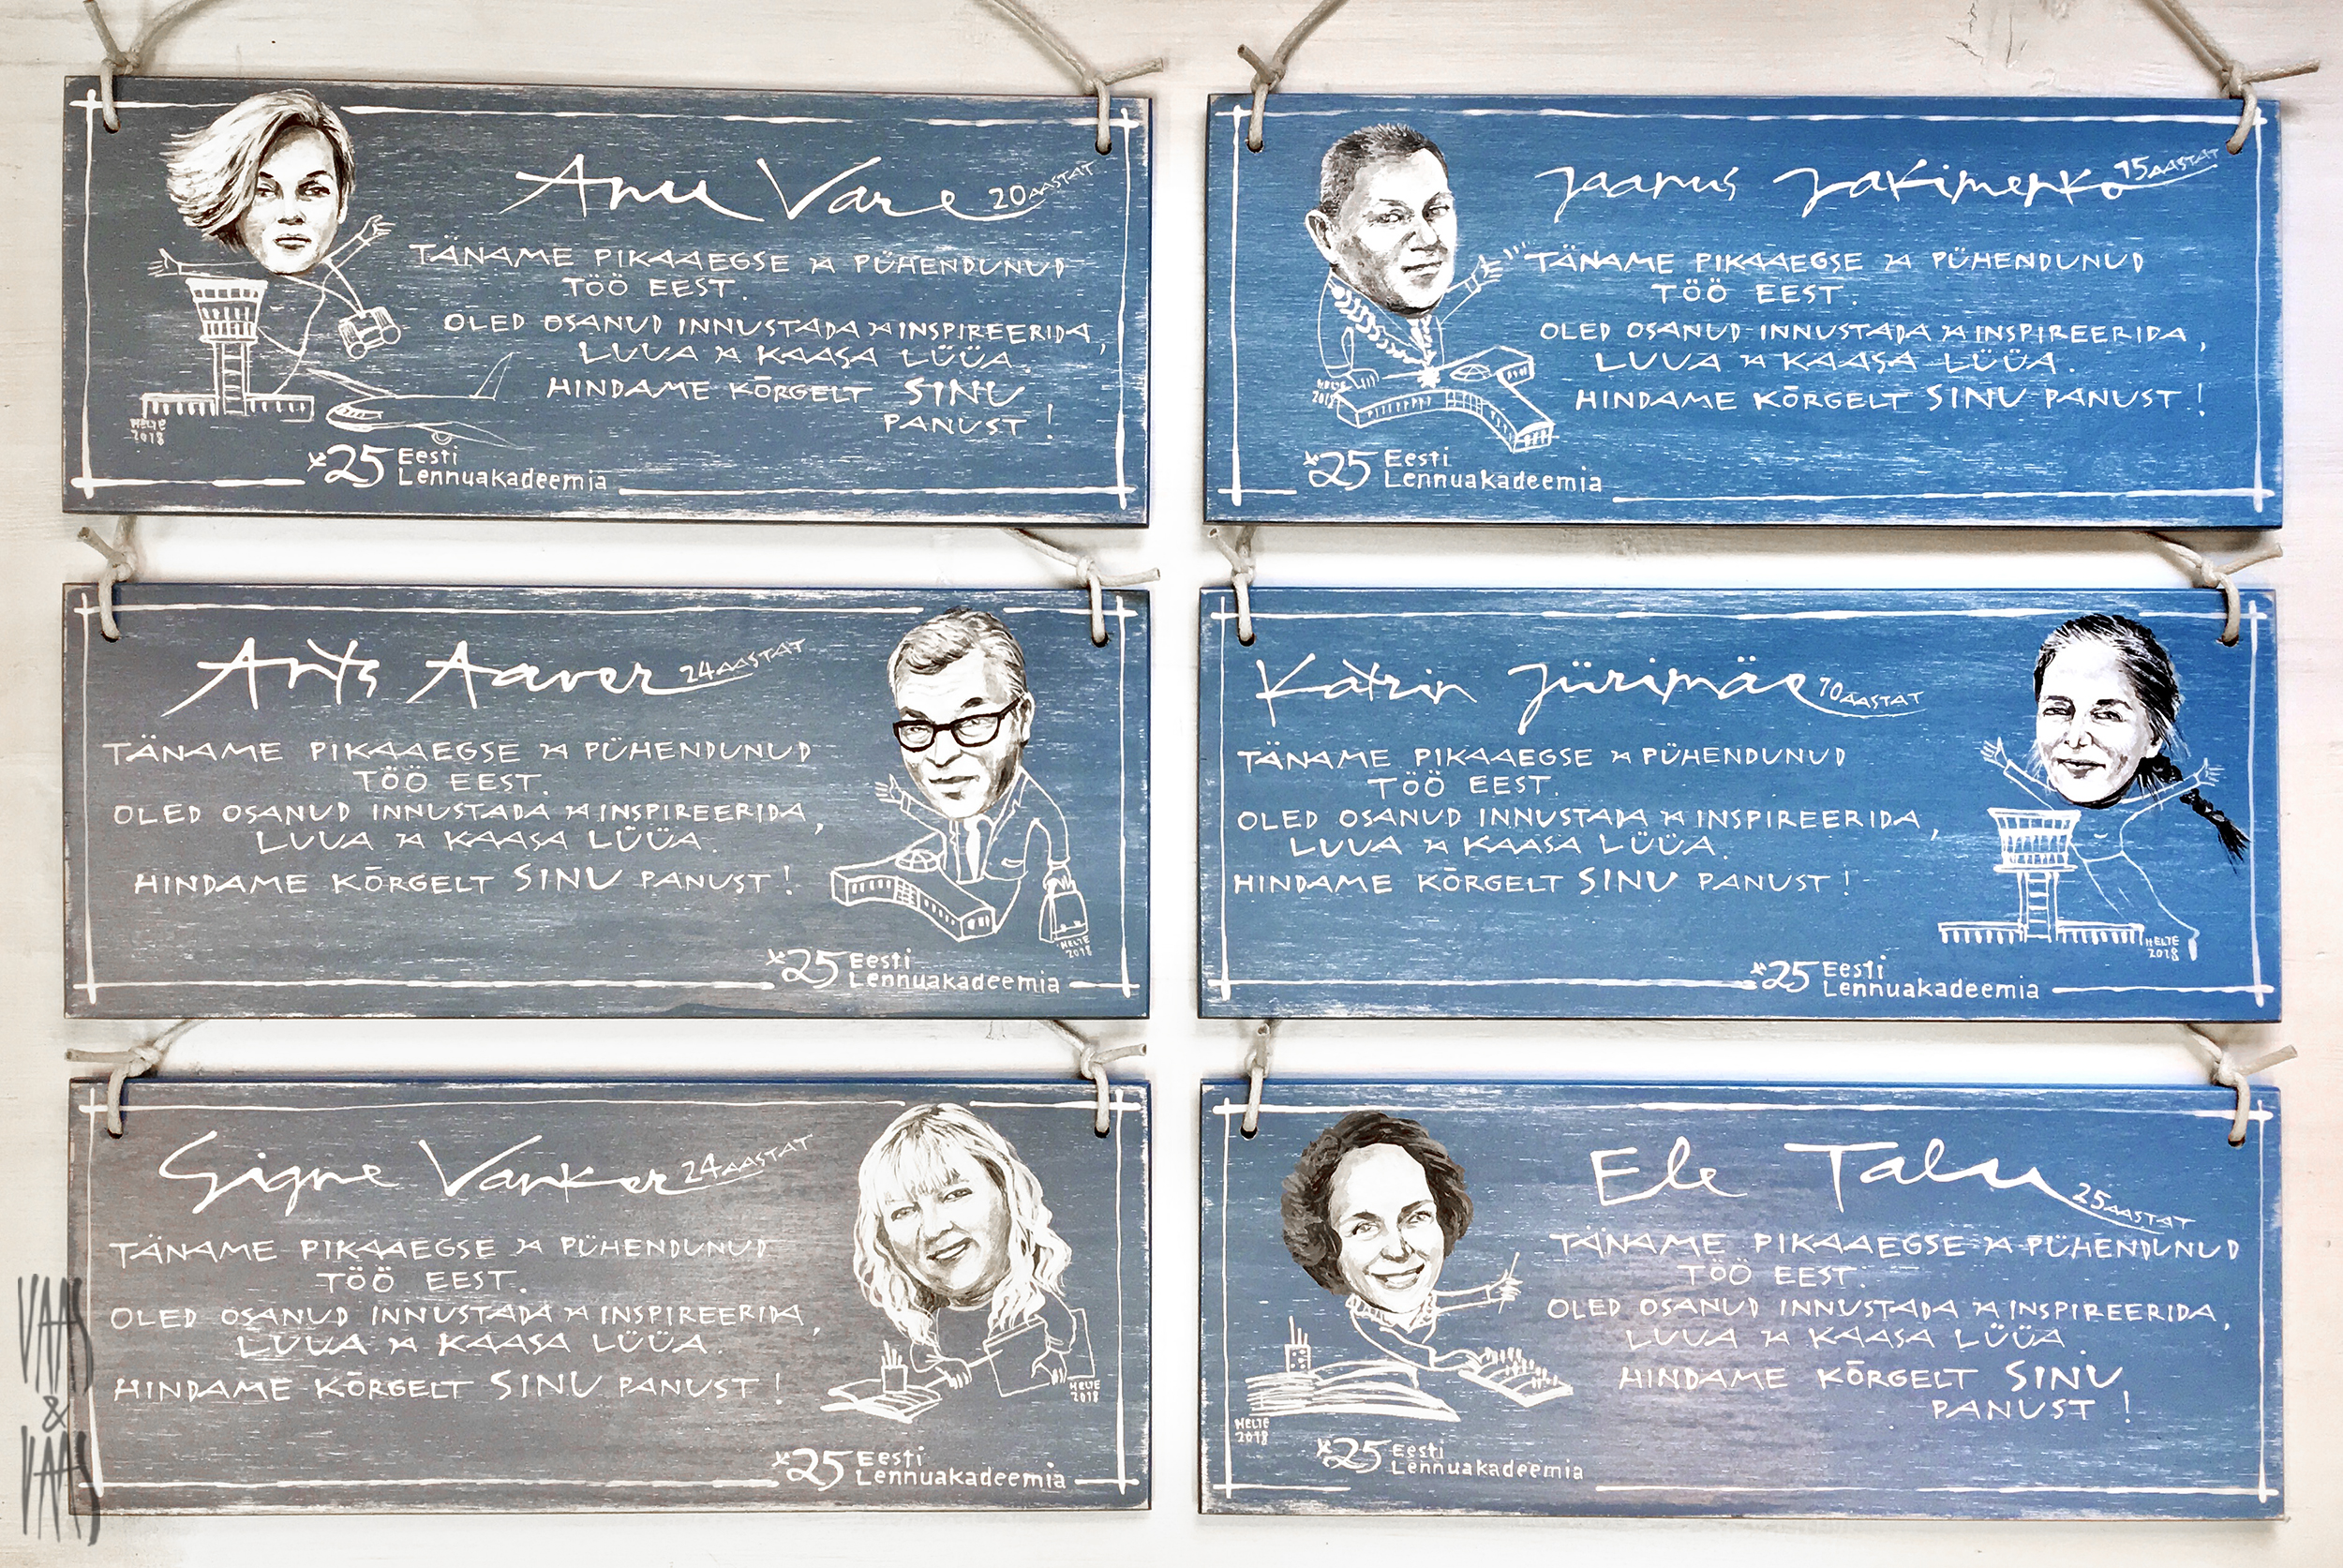 Anu Vare 20 AASTAT
TÄNAME PIKAAEGSE JA PÜHENDUNUD
TÖÖ EEST.
OLED OSANUD INNUSTADA JA INSPIREERIDA,
LUUA JA KAASA LÜÜA.
HINDAME KÕRGELT SINU
PANUST!
HELTE
2018
25 Eesti
Lennuakadeemia
Jaanus Jakimenko 15 AASTAT
TÄNAME PIKAAEGSE JA PÜHENDUNUD
TÖÖ EEST.
OLED OSANUD INNUSTADA JA INSPIREERIDA,
LUUA JA KAASA LÜÜA.
HINDAME KÕRGELT SINU PANUST!
HELTE
2018
25 Eesti
Lennuakadeemia
Ants Aaver 24 AASTAT
TÄNAME PIKAAEGSE JA PÜHENDUNUD
TÖÖ EEST.
OLED OSANUD INNUSTADA JA INSPIREERIDA,
LUUA JA KAASA LÜÜA.
HINDAME KÕRGELT SINU PANUST!
HELTE
2018
25 Eesti
Lennuakadeemia
Katrin Jürimäe 70 AASTAT
TÄNAME PIKAAEGSE JA PÜHENDUNUD
TÖÖ EEST.
OLED OSANUD INNUSTADA JA INSPIREERIDA,
LUUA JA KAASA LÜÜA.
HINDAME KÕRGELT SINU PANUST!
HELTE
2018
25 Eesti
Lennuakadeemia
Signe Vanker 24 AASTAT
TÄNAME PIKAAEGSE JA PÜHENDUNUD
TÖÖ EEST.
OLED OSANUD INNUSTADA JA INSPIREERIDA,
LUUA JA KAASA LÜÜA.
HINDAME KÕRGELT SINU PANUST!
HELTE
2018
25 Eesti
Lennuakadeemia
Ele Talu 25 AASTAT
TÄNAME PIKAAEGSE JA PÜHENDUNUD
TÖÖ EEST.
OLED OSANUD INNUSTADA JA INSPIREERIDA,
LUUA JA KAASA LÜÜA.
HINDAME KÕRGELT SINU
PANUST!
HELTE
2018
25 Eesti
Lennuakadeemia
VAAS
&
VAAS